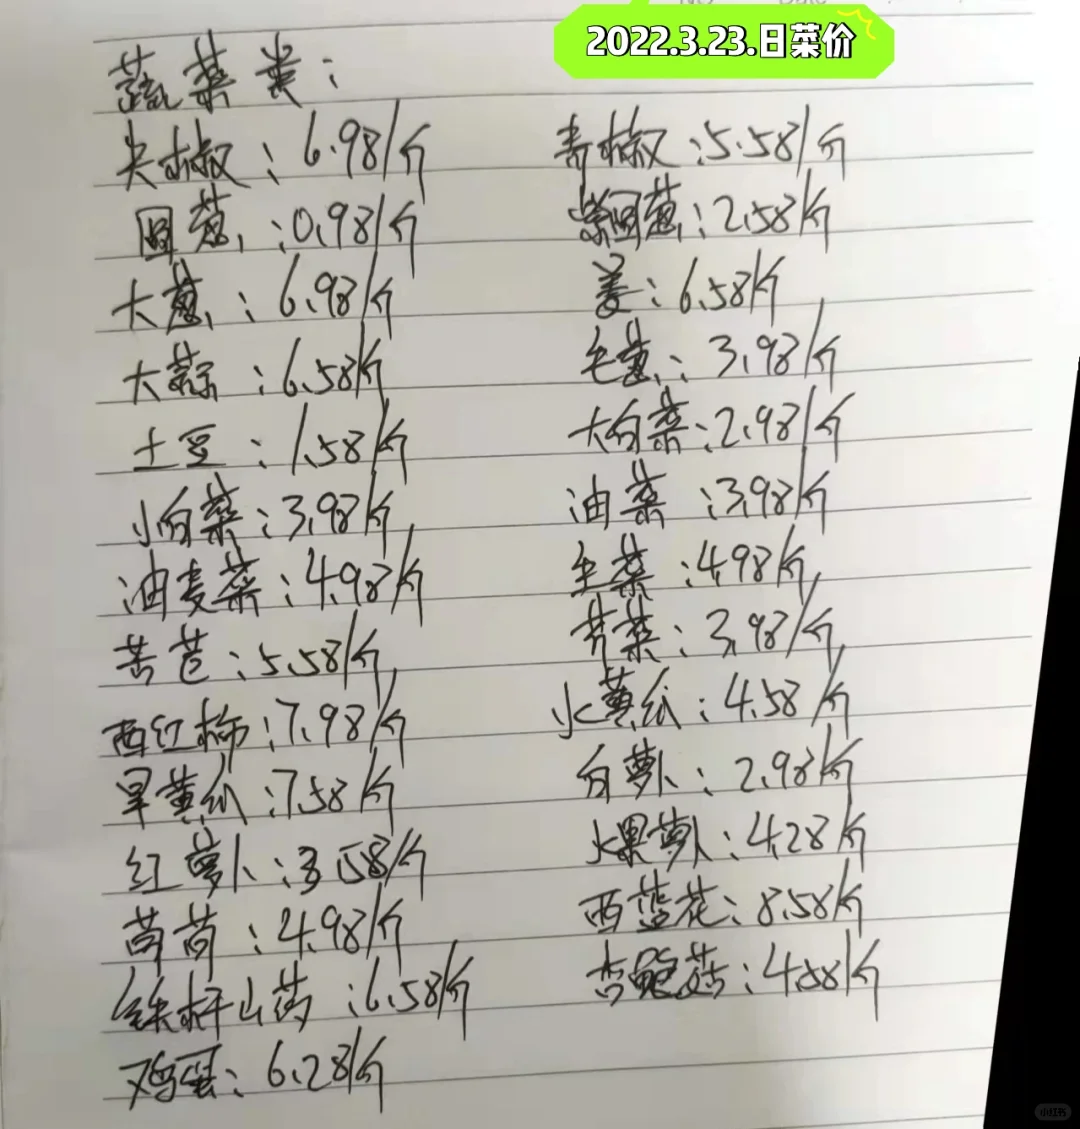 2022.3.23.日菜价
蔬菜类：
尖椒：6.98/斤 青椒：5.58/斤
圆葱：0.98/斤 紫圆葱：2.58/斤
大葱：6.98/斤 姜：6.58/斤
大蒜：6.58/斤 毛葱：3.98/斤
土豆：1.58/斤 大白菜：2.98/斤
小白菜：3.98/斤 油菜：3.98/斤
油麦菜：4.98/斤 生菜：4.98/斤
苦苣：5.58/斤 芹菜：3.98/斤
西红柿：7.98/斤 水黄瓜：4.58/斤
旱黄瓜：7.58/斤 白萝卜：2.98/斤
红萝卜：3.58/斤 水果萝卜：4.28/斤
茼茼：4.98/斤 西蓝花：8.58/斤
铁杆山药：6.58/斤 杏鲍菇：4.58/斤
鸡蛋：6.28/斤
小红书